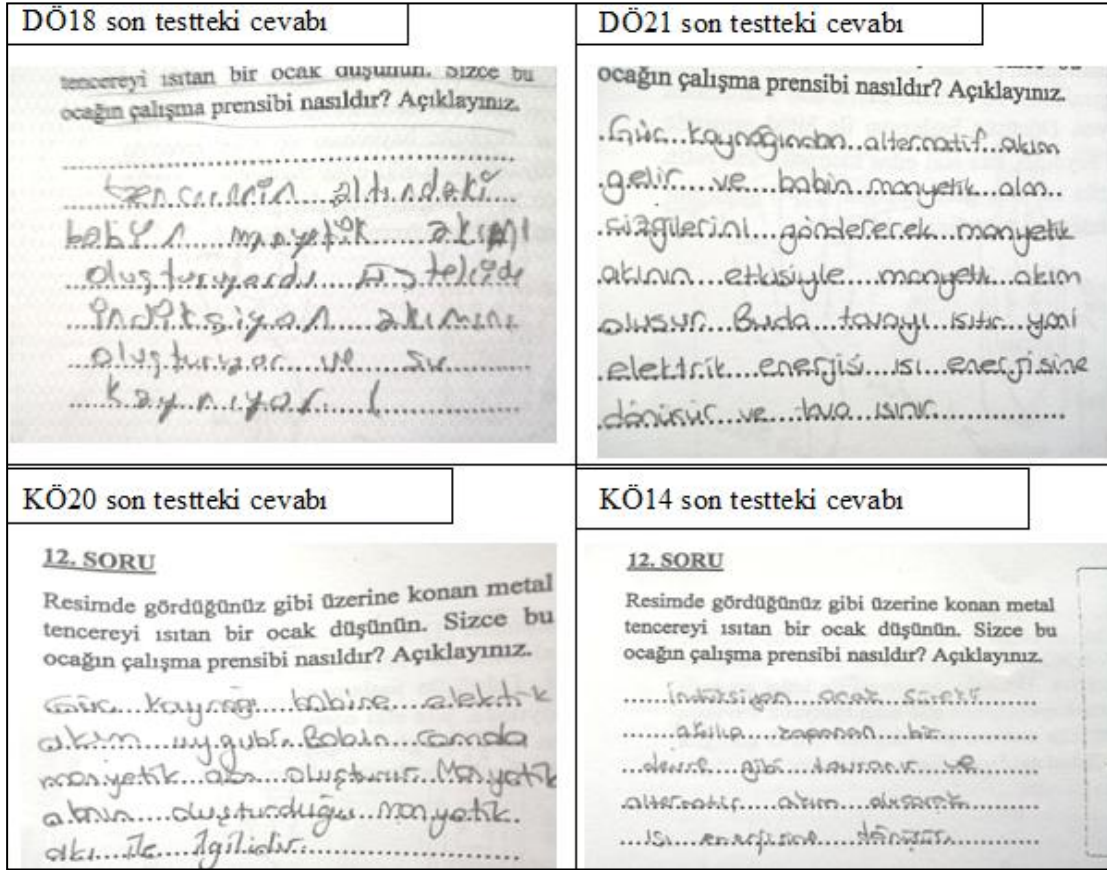 DÖ18 son testteki cevabı
tencereyi ısıtan bir ocak düşünün. Sizce bu
ocağın çalışma prensibi nasıldır? Açıklayınız.
tencerenin altındaki
bobin manyetik akımı
oluşturuyordu telide
indiksiyon akımını
oluşturuyor ve su
kaynıyor
DÖ21 son testteki cevabı
ocağın çalışma prensibi nasıldır? Açıklayınız.
Güç kaynağından alternatif akım
gelir ve bobin manyetik alan
çizgilerini göndererek manyetik
akının etkisiyle manyetik akım
oluşur. Buda tavayı ısıtır yani
elektrik enerjisi ısı enerjisine
dönüşür ve tava ısınır.
KÖ20 son testteki cevabı
12. SORU
Resimde gördüğünüz gibi üzerine konan metal
tencereyi ısıtan bir ocak düşünün. Sizce bu
ocağın çalışma prensibi nasıldır? Açıklayınız.
Güç kaynağı bobine elektrik
akım uygular. Bobin camda
manyetik alan oluşturur. Manyetik
alanın oluşturduğu manyetik
akı ile ilgilidir.
KÖ14 son testteki cevabı
12. SORU
Resimde gördüğünüz gibi üzerine konan metal
tencereyi ısıtan bir ocak düşünün. Sizce bu
ocağın çalışma prensibi nasıldır? Açıklayınız.
İndüksiyon ocak sürekli
açılıp kapanan bir
devre gibi davranır ve
alternatif akım oluşarak
ısı enerjisine dönüşür.